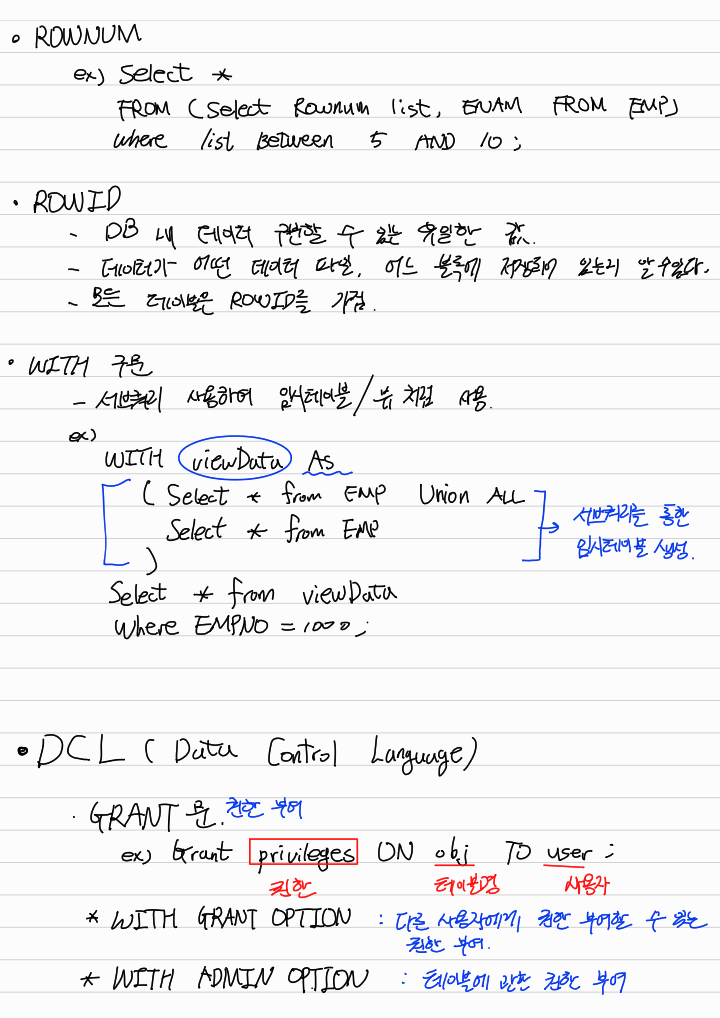 • ROWNUM
ex) Select *
FROM (Select Rownum list, ENAM FROM EMP)
where list BETWEEN 5 AND 10 ;
• ROWID
- DB 내 데이터 구분할 수 있는 유일한 값.
- 데이터가 어떤 데이터 파일, 어느 블록에 저장되어 있는지 알 수 있다.
- 모든 테이블은 ROWID를 가짐.
• WITH 구문
- 서브쿼리 사용하여 임시테이블/뷰 처럼 사용.
ex)
WITH viewData As
( Select * from EMP Union ALL
Select * from EMP
)
서브쿼리를 통한
임시테이블 생성.
Select * from viewData
Where EMPNO = 1000;
• DCL ( Data Control Language)
· GRANT 문. 권한 부여
ex) Grant privileges ON obj TO user ;
권한 테이블명 사용자
* WITH GRANT OPTION : 다른 사용자에게 권한 부여할 수 있는
권한 부여.
* WITH ADMIN OPTION : 테이블에 관한 권한 부여